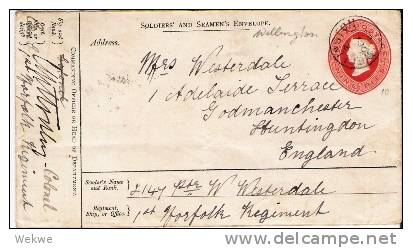 SOLDIERS' AND SEAMEN'S ENVELOPE.
Wellington
Address,
Mrs Westerdale
1 Adelaide Terrace
Godmanchester
Huntingdon
England
Sender's Name and Rank.
W Westerdale
Regiment, Ship, or Office.
1st Norfolk Regiment
COMMANDING OFFICER OR HEAD OF DEPARTMENT.
Colonel
Norfolk Regiment
www.delcampe.net
wkev